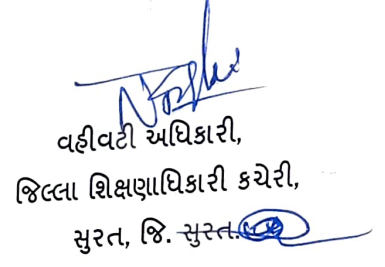 વહીવટી અધિકારી,
જિલ્લા શિક્ષણાધિકારી કચેરી,
સુરત, જિ. સુરત.